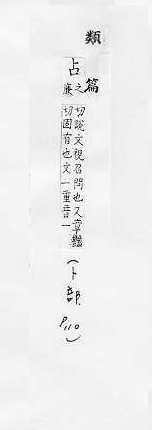 類篇
占
之廉
切說文視召問也又章豔
切固有也文一重音一
(卜部 P.110)